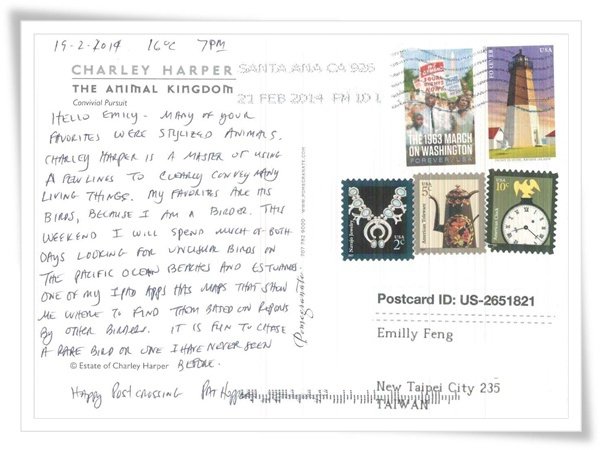 19-2-2014 16°C 7PM
CHARLEY HARPER
THE ANIMAL KINGDOM
Convivial Pursuit
SANTA ANA CA 926
21 FEB 2014 PM 10 L
HELLO EMILY - MANY OF YOUR
FAVORITES WERE STYLIZED ANIMALS.
CHARLEY HARPER IS A MASTER OF USING
A FEW LINES TO CLEARLY CONVEY MANY
LIVING THINGS. MY FAVORITES ARE HIS
BIRDS, BECAUSE I AM A BIRDER. THIS
WEEKEND I WILL SPEND MUCH OF BOTH
DAYS LOOKING FOR UNUSUAL BIRDS ON
THE PACIFIC OCEAN BEACHES AND ESTUARIES
ONE OF MY IPAD APPS HAS MAPS THAT SHOW
ME WHERE TO FIND THEM BASED ON REPORTS
BY OTHER BIRDERS. IT IS FUN TO CHASE
A RARE BIRD OR ONE I HAVE NEVER SEEN
BEFORE.
© Estate of Charley Harper
HAPPY POSTCROSSING PAT
Pomegranate
707 782 9000
WWW.POMEGRANATE.COM
EQUAL RIGHTS NOW
THE 1963 MARCH
ON WASHINGTON
FOREVER USA
FOREVER
USA
Navajo Jewelry
USA
2c
USA
5c
American Toleware
USA
10c
American Clock
Postcard ID: US-2651821
Emilly Feng
New Taipei City 235
TAIWAN